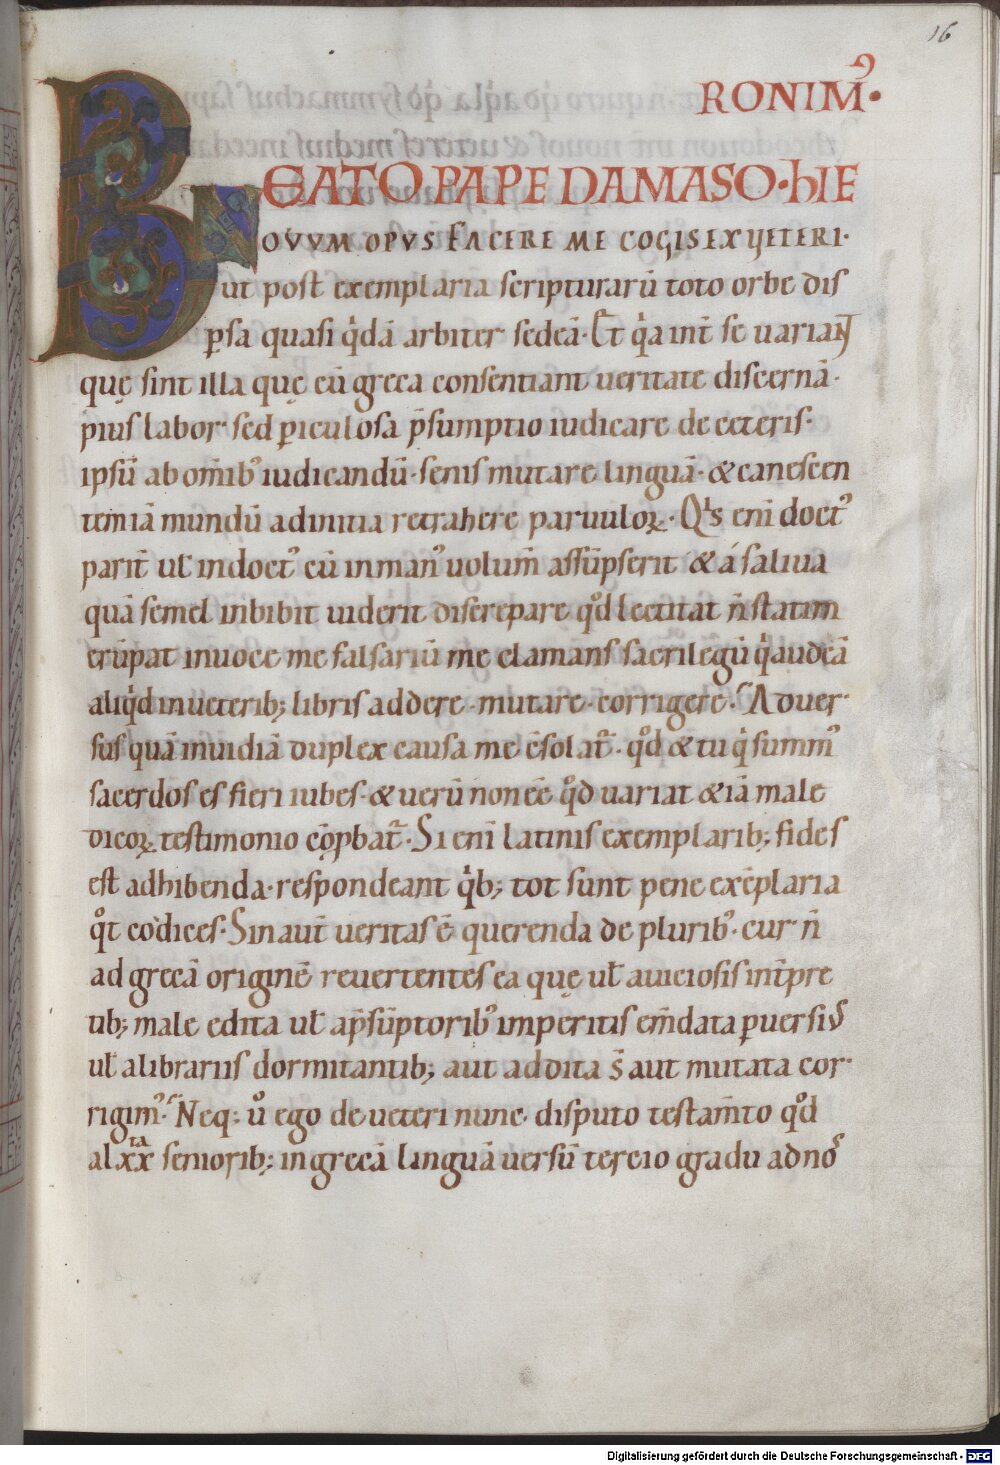 16
RONIMꝰ·
BEATO PAPE DAMASO·hIE
NOVVM OPVS FACERE ME COGIS EX VETERI·
ut post exemplaria scripturarū toto orbe dis
ꝑsa quasi qͥdā arbiter sedeā· Et qͥa int̄ se uariant
quę sint illa quę cū greca consentiant ueritate discernā·
pius labor· sed ꝑiculosa p̄sumptio iudicare de ceteris·
ipsū ab om̄ibꝰ iudicandū· senis mutare linguā· & canescen
tem iā mundū ad initia retrahere paruuloꝝ· Qͥs eni doctꝰ
parit̄ ut indoctꝰ cū in manꝰ uolum̄ assūpserit & á saliua
quā semel inbibit uiderit discrepare qͦd lectitat n̄ statim
erūpat in uoce me falsariū me clamans sacrilegū qͥ audeā
aliqͥd in ueterib; libris addere· mutare· corrigere· Aduer·
sus quā inuidiā duplex causa me c̄solat᷑· qͦd & tu qͥ summꝰ
sacerdos es fieri iubes· & uerū non eē qͦd uariat & iā male
dicoꝝ testimonio cōꝓbat᷑· Si eni latinis exemplarib; fides
est adhibenda· respondeant qͥb; tot sunt pene exēplaria
qͦt codices· Sin aut̄ ueritas ē querenda de pluribꝰ· cur n̄
ad grecā originē reuertentes ea quę ut̄ a uiciosis int̄pre
tib; male edita ut̄ a p̄sūptoribꝰ imperitis em̄data ꝑuersiꝰ
ut̄ a librariis dormitantib; aut addita s̄ aut mutata cor·
rigimꝰ· Neq; uͦ ego de ueteri nunc disputo testam̄to qͦd
al xxͭͣ seniorib; in grecā linguā uersū tercio gradu ad noˢ
Digitalisierung gefördert durch die Deutsche Forschungsgemeinschaft - DFG